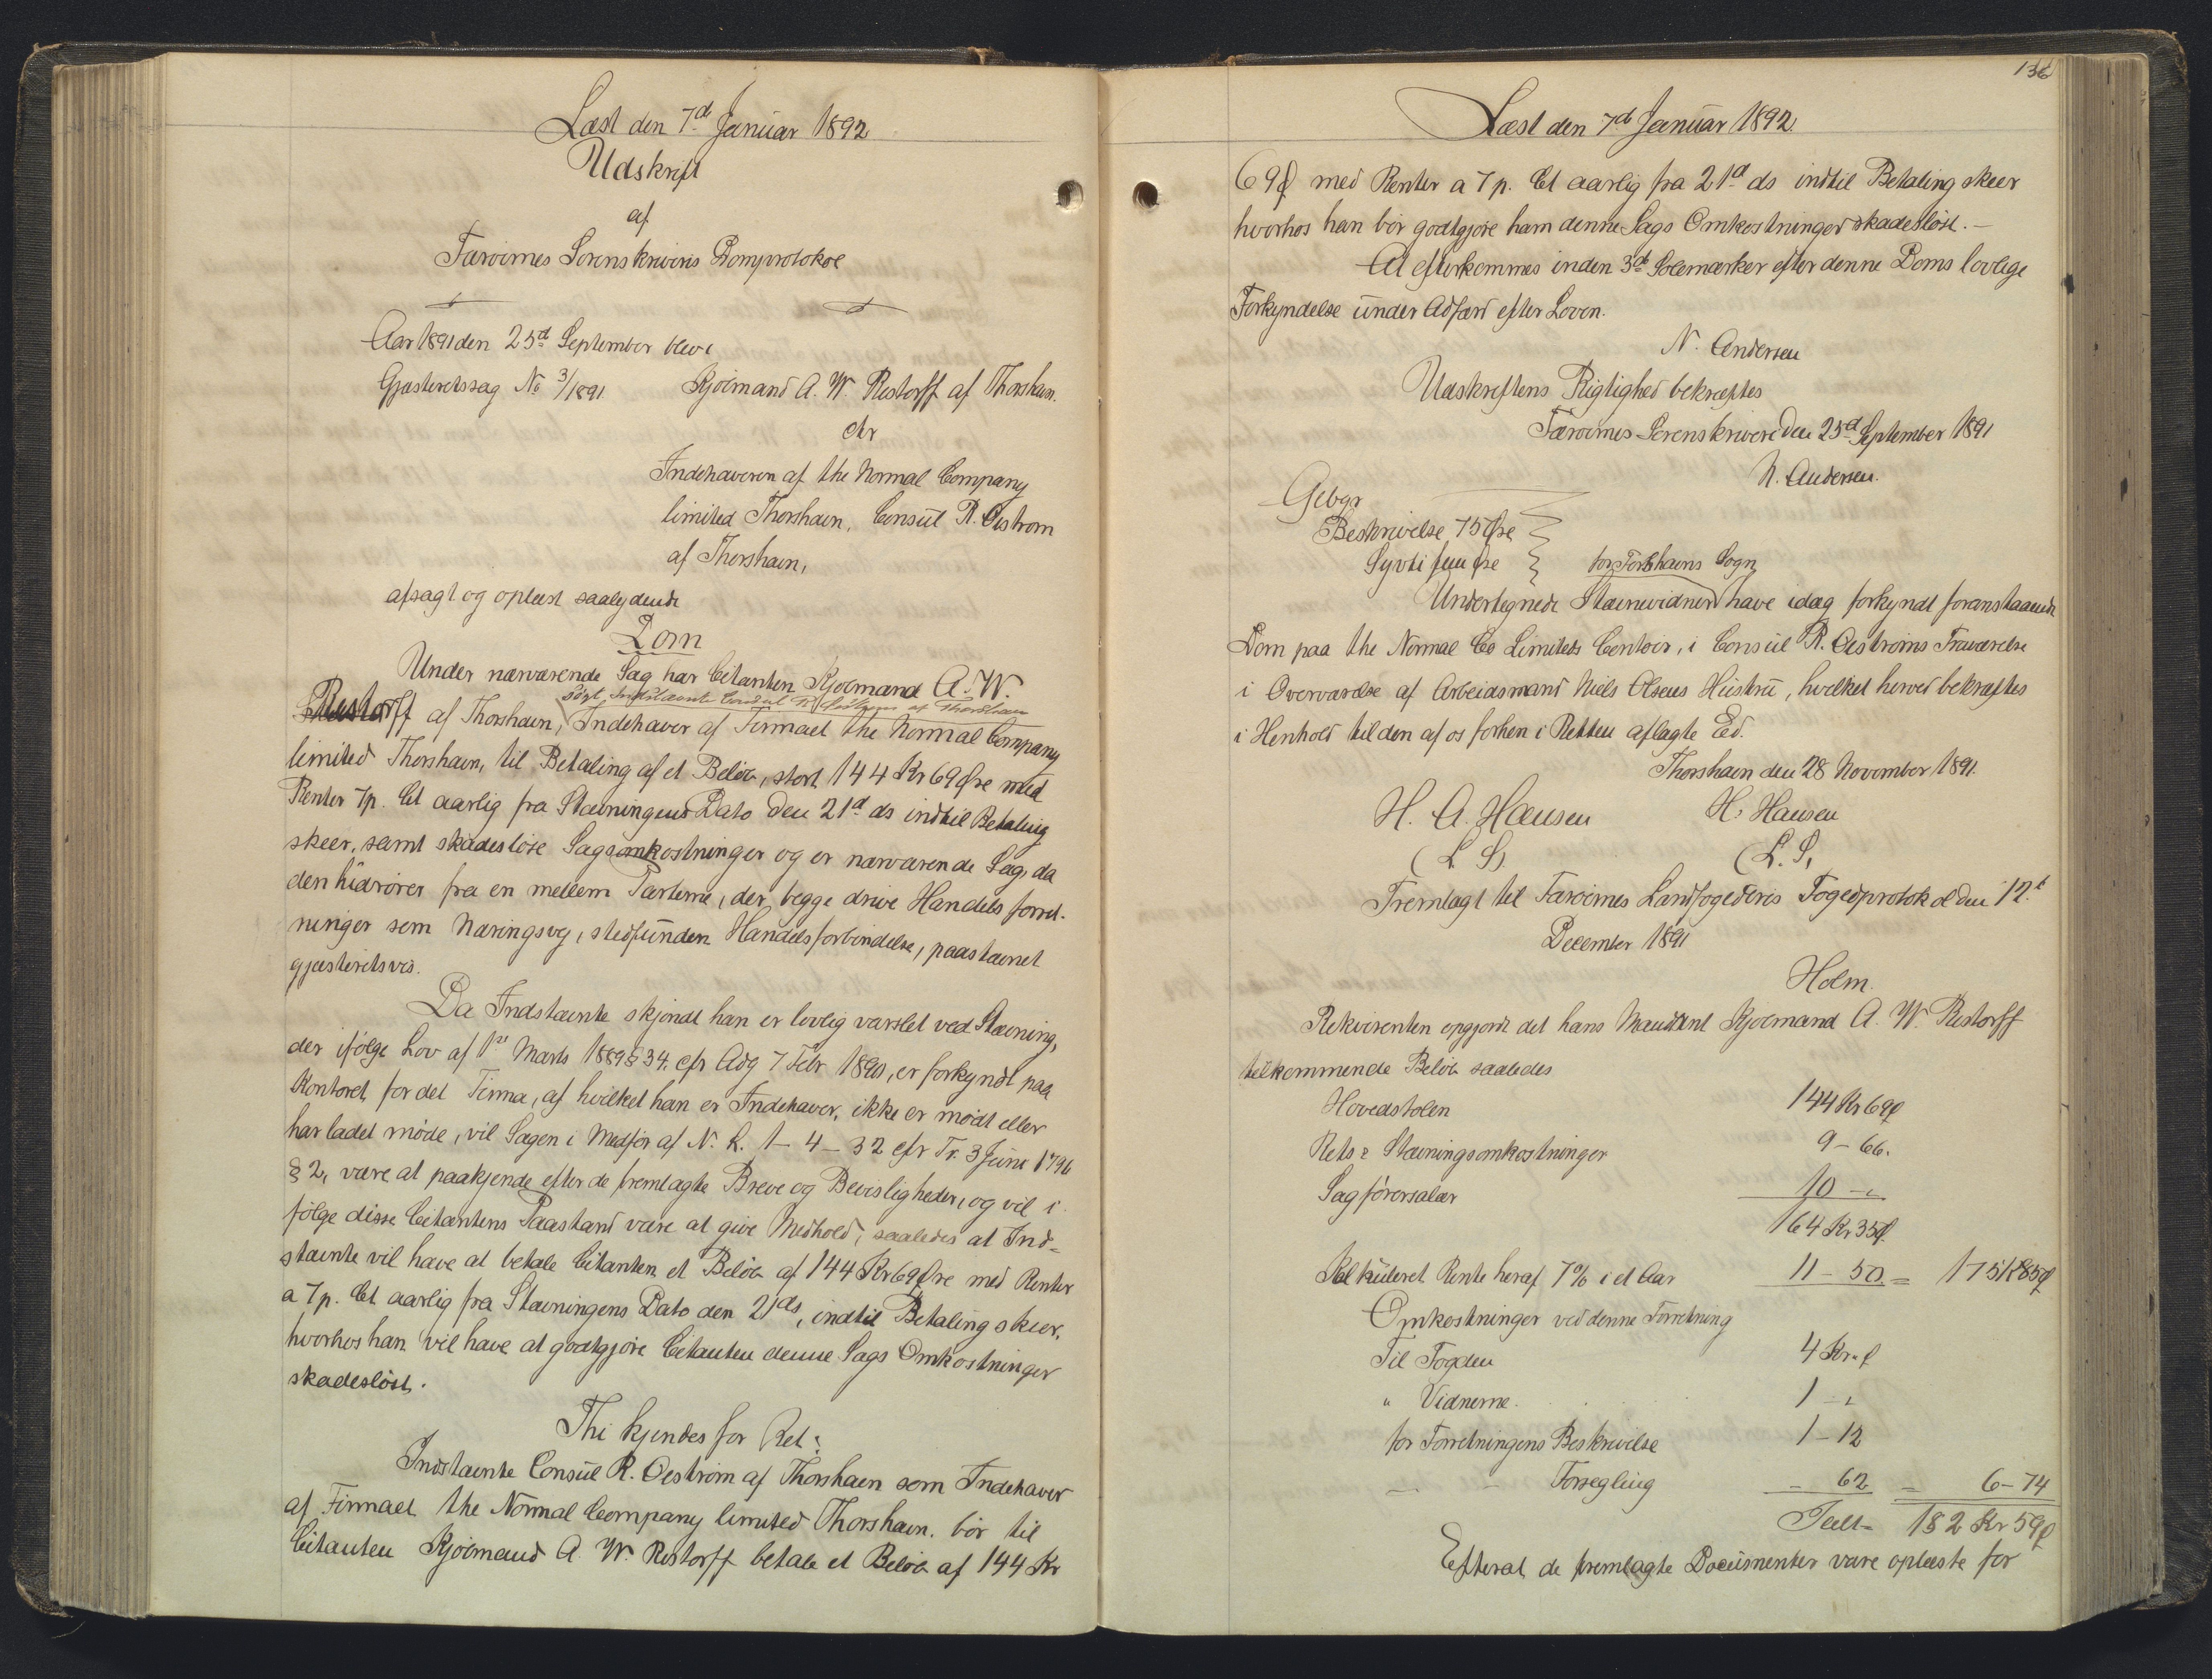 Læst den 7de Januar 1892
Udskrift
af
Færøernes Sorenskriveris Domprotokol
Aar 1891 den 25de September blev i
Gjæsteretssag No 3/1891 Kjøbmand A. W. Restorff af Thorshavn.
ctr
Indehaveren af the Normal Company
limited Thorshavn, Consul R. Oestrom
af Thorshavn,
afsagt og oplæst saalydende
Dom
Under nærværende Sag har Citanten Kjøbmand A. W.
søgt Indstævnte Consul R. Oestrøm af Thorshavn
Restorff af Thorshavn, Indehaver af Firmaet the Normal Company
limited Thorshavn, til Betaling af et Beløb, stort 144 Kr 69 Øre med
Renter 7 p. Ct aarlig fra Stævningens Dato den 21de ds indtil Betaling
skeer, samt skadesløse Sagsomkostninger og er nærværende Sag, da
den hidrører fra en mellem Parterne, der begge drive Handels forret-
ninger som Næringsvej, stedfunden Handelsforbindelse, paastævnet
gjæsteretsvis.
Da Indstævnte skjøndt han er lovlig varslet ved Stævning,
der ifølge Lov af 1ste Marts 1889 § 34, cfr Adg 7 Febr 1890, er forkyndt paa
Kontoret for det Firma, af hvilket han er Indehaver, ikke er mødt eller
har ladet møde, vil Sagen i Medfør af N. L. 1-4-32 cfr Fr. 3 Juni 1796
§ 2, være at paakjende efter de fremlagte Breve og Bevisligheder, og vil i
følge disse Citantens Paastand være at give Medhold, saaledes at Ind-
stævnte vil have at betale Citanten et Beløb af 144 Kr 69 Øre med Renter
a 7 p. Ct aarlig fra Stævningens Dato den 21 ds, indtil Betaling skeer,
hvorhos han vil have at godtgjøre Citanten denne Sags Omkostninger
skadesløst.
Thi kjendes for Ret:
Indstævnte Consul R. Oestrøm af Thorshavn som Indehaver
af Firmaet the Normal Company limited Thorshavn. bør til
Citanten Kjøbmand A. W. Restorff betale et Beløb af 144 Kr
136
Læst den 7de Januar 1892.
69 Ø med Renter a 7 p. Ct aarlig fra 21de ds indtil Betaling skeer
hvorhos han bør godtgjøre ham denne Sags Omkostninger skadesløst. –
At efterkommes inden 3de Solemærker efter denne Doms lovlige
Forkyndelse under Adfærd efter Loven.
N. Andersen
Udskriftens Rigtighed bekræftes
Færøernes Sorenskriveri den 25de September 1891
N. Andersen.
Gebyr
Beskrivelse 75 Øre
Syvti fem Øre
for Torshavns Sogn
Undertegnede Stævnevidner have idag forkyndt foranstaaende
Dom paa the Normal Co Limiteds Contoir, i Consul R. Oestrøms Fraværelse
i Overværelse af Arbeidsmand Niels Olsens Hustru, hvilket herved bekræftes
i Henhold til den af os forhen i Retten aflagte Ed.
Thorshavn den 28 November 1891.
H. A. Hansen H. Hansen
(L. S). (L. S.
Fremlagt til Færøernes Landfogederis Fogedprotokol den 12te
December 1891
Holm.
Rekvirenten opgjorde det hans Mandant Kjøbmand A. W. Restorff
tilkommende Beløb saaledes
Hovedstolen 144 Kr 69 Ø
Rets & Stævningsomkostninger 9 – 66.
Sagførersalær 10 – "
164 Kr 35 Ø.
Kalkuleret Rente heraf 7% i et Aar 11 – 50 = 175 K 85 Ø
Omkostninger ved denne Forretning
Til Fogden 4 Kr " Ø
" Vidnerne. 1 – "
for Forretningens Beskrivelse 1 – 12
– – Forsegling – 62 = 6 – 74
Ialt = 182 Kr 59 Ø
Efterat de fremlagte Documenter vare oplæste for